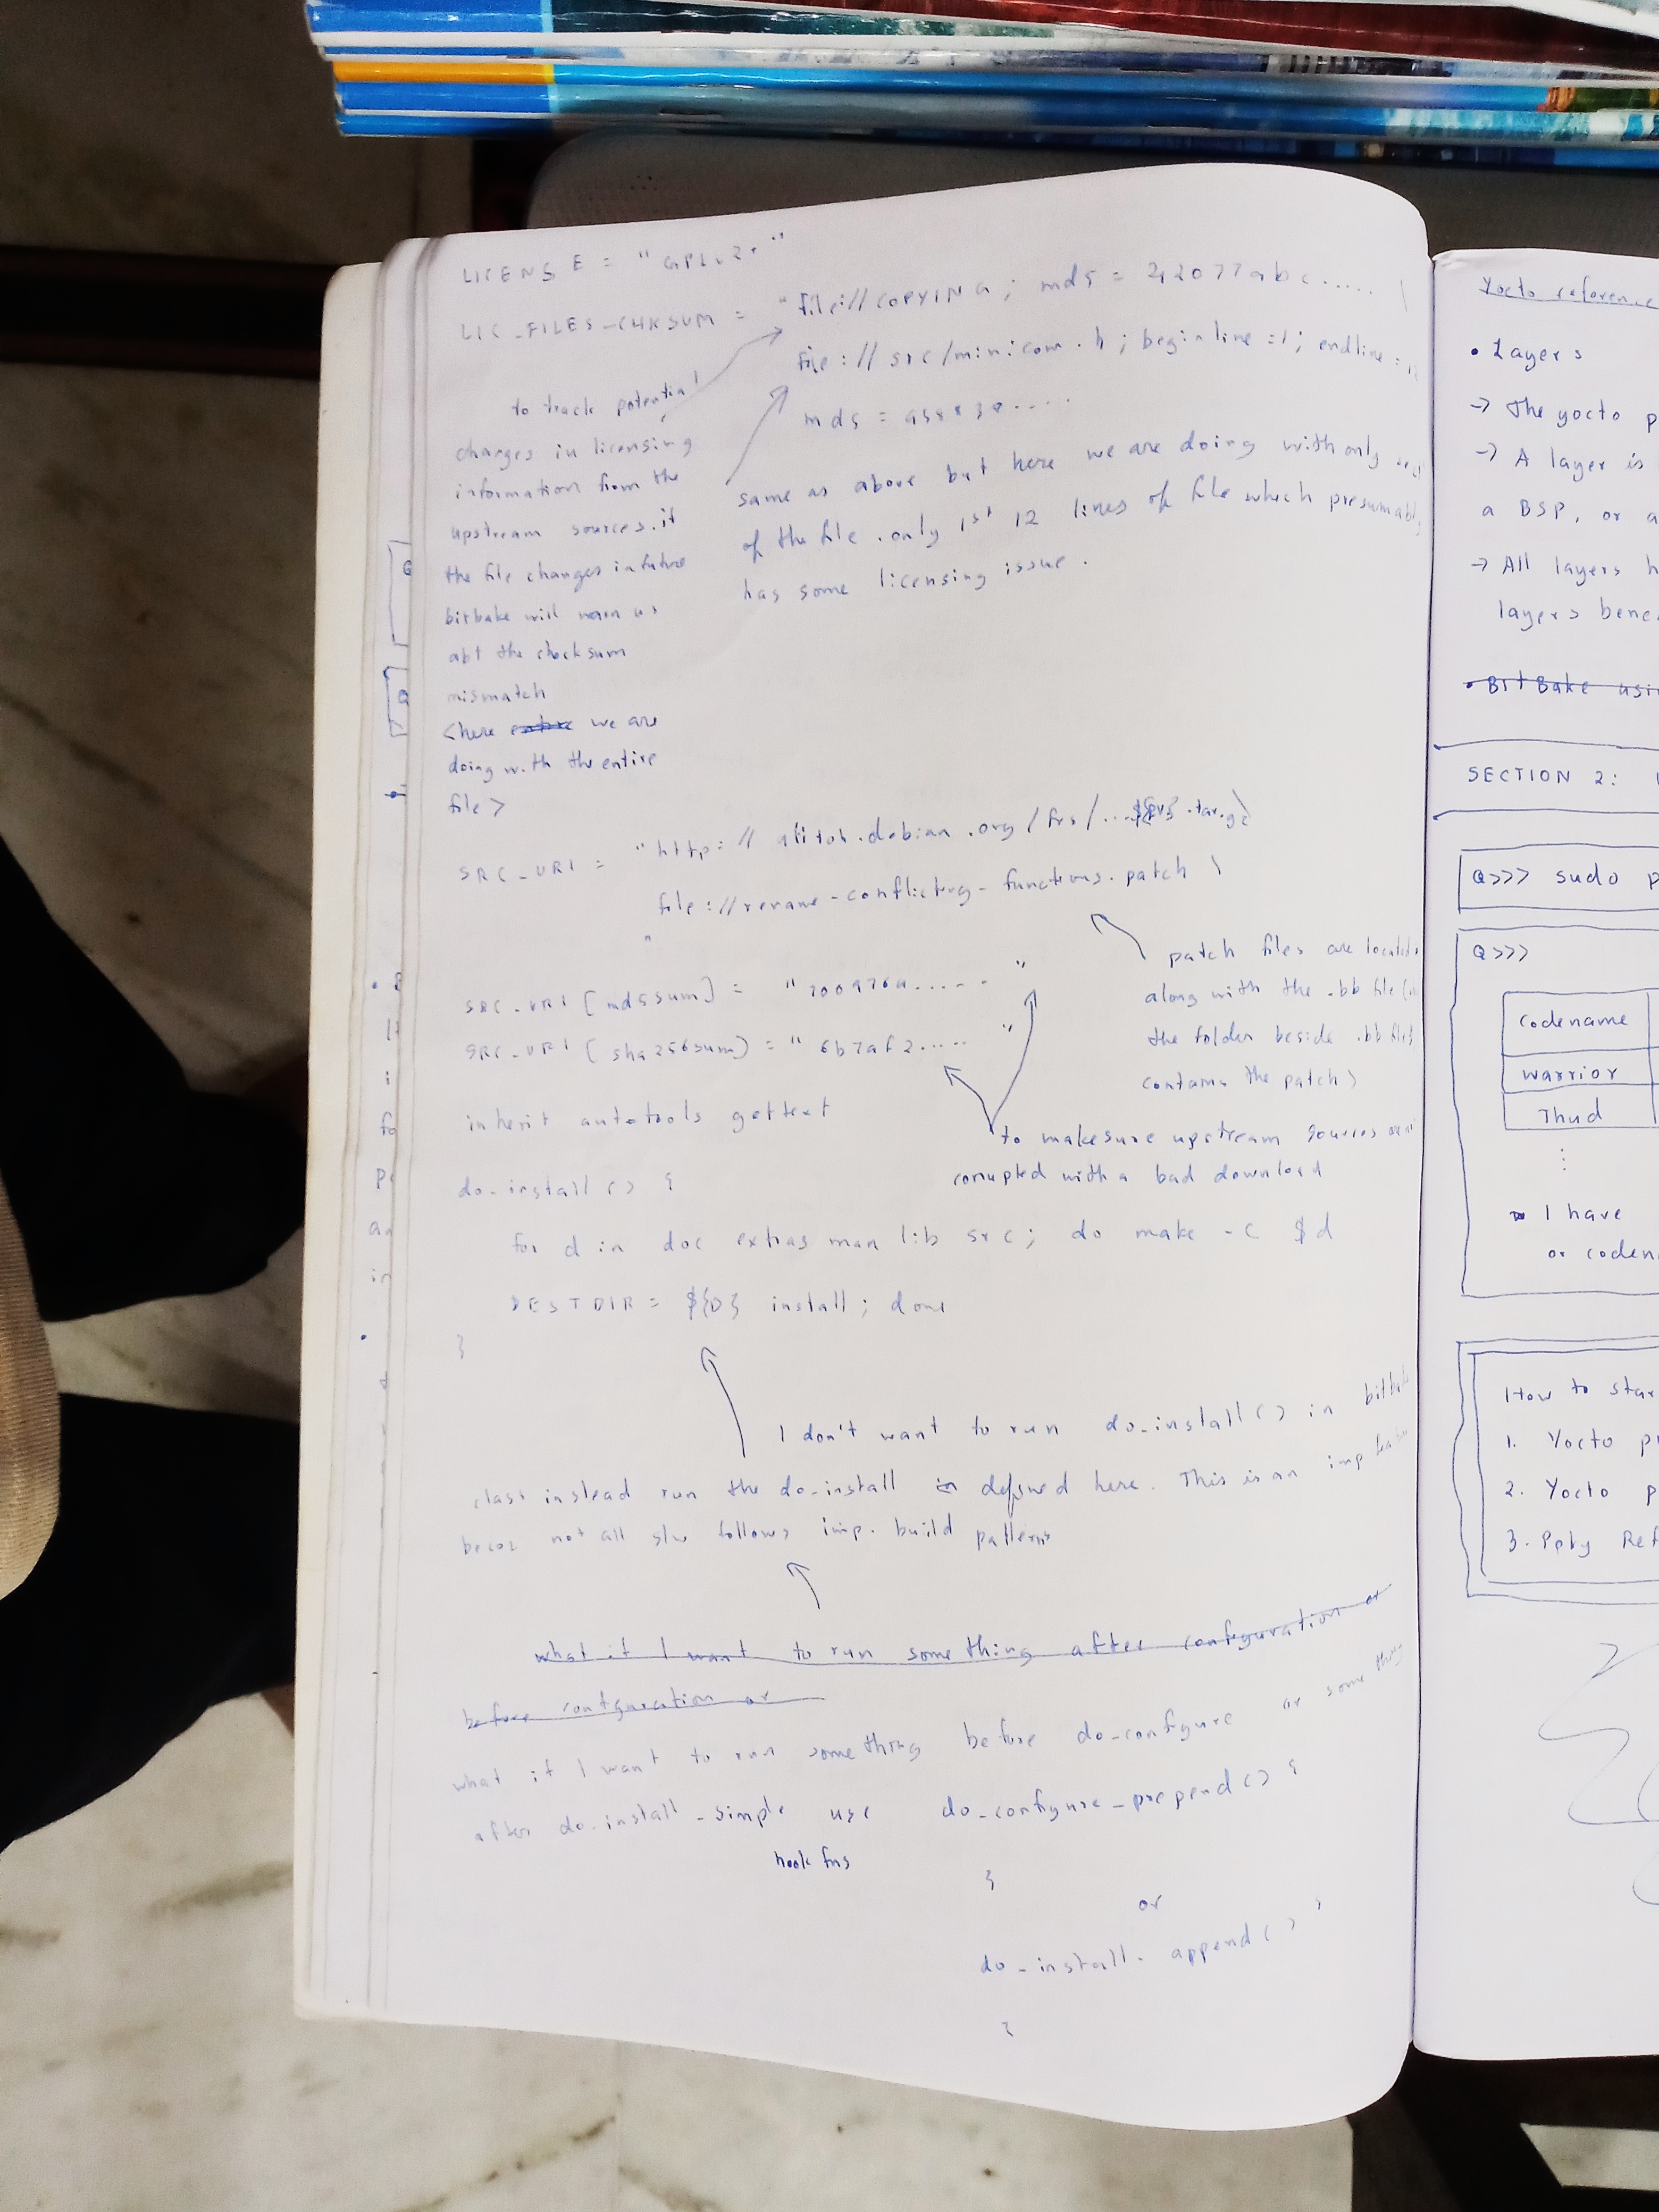 LICENSE = "GPLv2+"
LIC_FILES_CHKSUM = "file://COPYING; md5 = 42077abc..... \
file://src/minicom.h; beginline=1; endline=12
md5 = a58838.....
to track potential
changes in licensing
information from the
upstream sources. if
the file changes in future
bitbake will warn us
abt the checksum
mismatch
<here we are
doing with the entire
file>
same as above but here we are doing with only
of the file. only 1st 12 lines of file which presumably
has some licensing issue.
SRC_URI = "http://alioth.debian.org/frs/...${PV}.tar.gz\
file://rename-conflicting-functions.patch \
"
patch files are located
along with the .bb file (
the folder beside .bb file
contains the patch)
SRC_URI [md5sum] = "700976a......"
SRC_URI [sha256sum] = "6b7af2....."
to makesure upstream sources
corrupted with a bad download
inherit autotools gettext
do_install () {
for d in doc extras man lib src; do make -C $d
DESTDIR = ${D} install; done
}
I don't want to run do_install() in bitbake
class instead run the do_install defined here. This is an imp
becoz not all s/w follows imp. build patterns
what if I want to run something after configuration or
before configuration or
what if I want to run something before do_configure or some thing
after do_install - simple use do_configure_prepend() {
hook fns
}
or
do_install_append() {
}
Yocto reference
• Layers
→ The yocto p
→ A layer is
a BSP, or a
→ All layers h
layers bene
• BitBake usi
SECTION 2:
Q>>> sudo p
Q>>>
Codename
Warrior
Thud
I have
or coden
How to star
1. Yocto p
2. Yocto p
3. Poky Ref